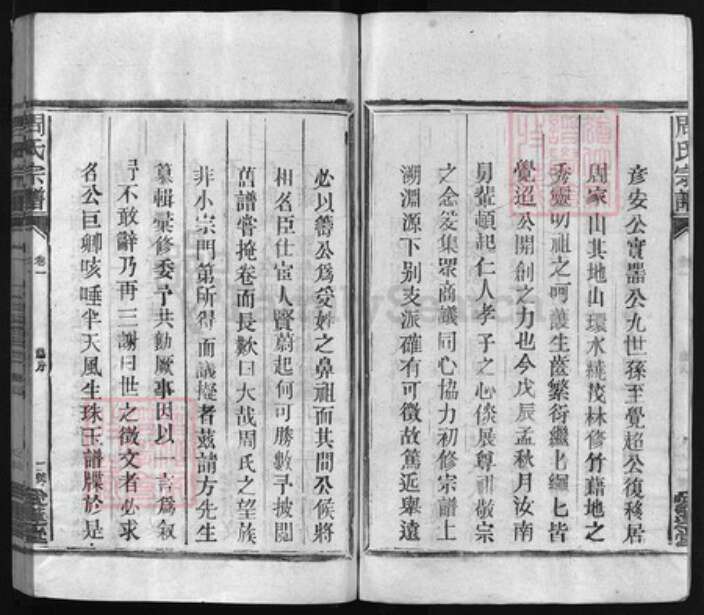 彥安公實器公九世孫至覺超公復移居
周家山其地山環水繞茂林修竹藉地之
秀靈明祖之呵護生齒繁衍繼 繩 皆
覺迢公開創之力也今戊辰孟秋月汝南
舅輩頓起仁人孝子之心倐展尊祖敬宗
之念爰集眾商議同心協力初修宗譜上
溯淵源下别支派確有可徵故篤近舉遠
必以籌公為受姓之鼻祖而其間公候將
相名臣仕宦人賢蔚起何可勝數予披閱
舊譜嘗掩卷而長歎曰大哉周氏之望族
非小宗門第所得而議擬者茲請方先生
纂輯彙修委予共勷厥事因以一言為叙
予不敢辭乃再三謝曰世之徵文者必求
名公巨卿咳唾半天風生珠玉譜牒於是
周氏宗譜
卷一
周氏宗譜
FamilySearch